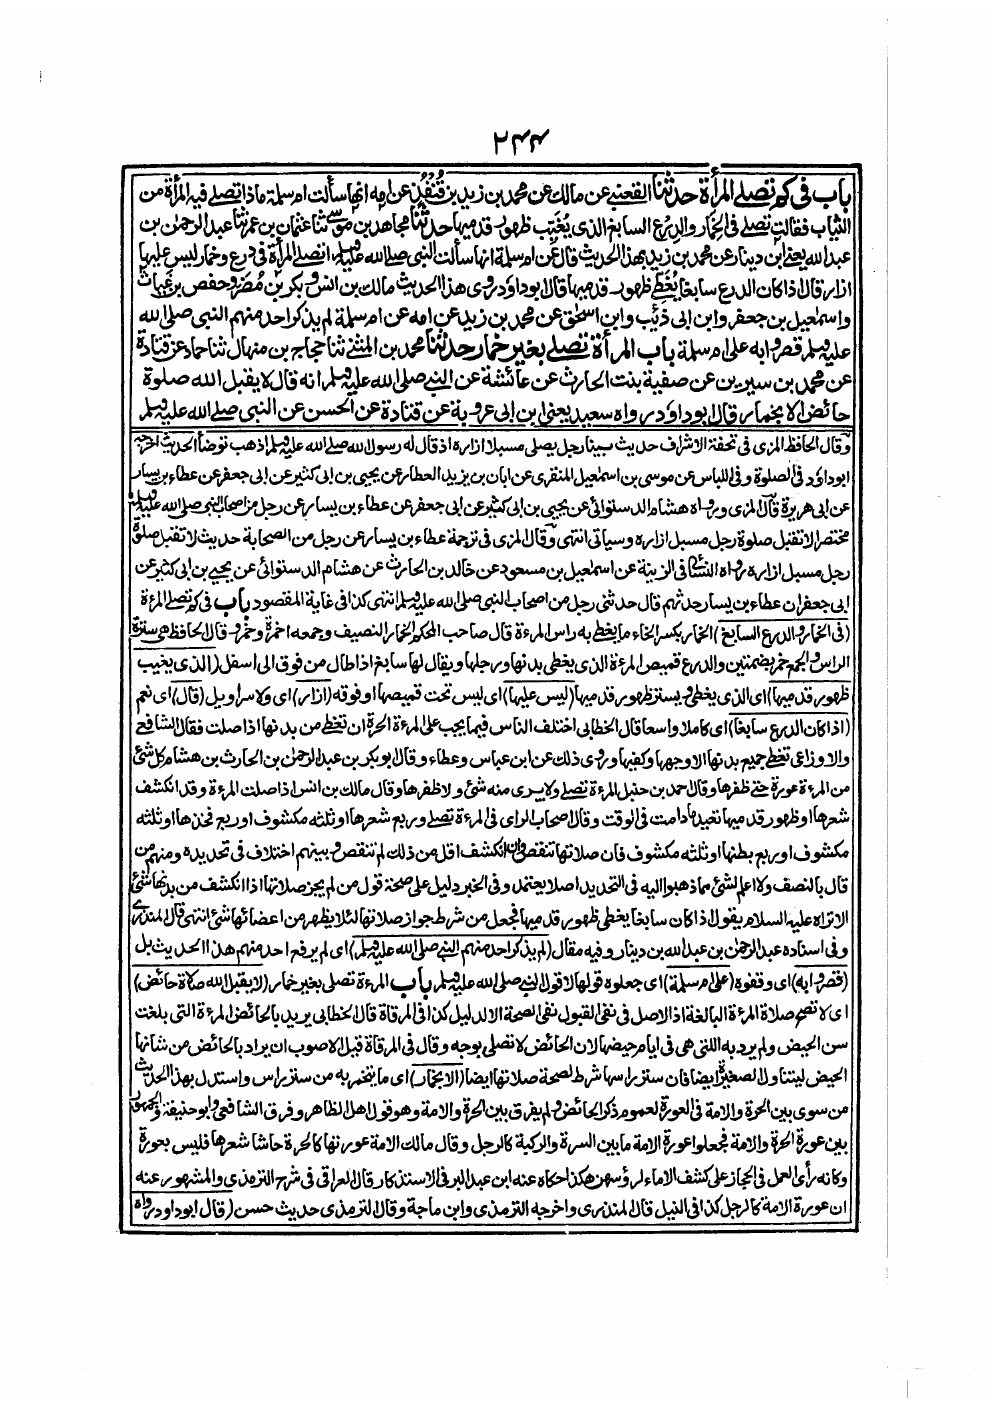 ٢٤٤
باب فى كم تصلى المرأة حدثنا القعنبى عن مالك عن محمد بن زيد بن قُنْفُذٍ عن امه انها سألت ام سلمة ماذا تصلى فيه المرأة من
الثياب فقالت تصلى فى الخمار والدرع السابغ الذى يُغَيّب ظهور قدميها حدثنا مجاهد بن موسى ثنا عثمان بن عمر ثنا عبد الرحمن بن
عبد الله يعنى ابن دينار عن محمد بن زيد بهذا الحديث قال عن ام سلمة انها سألت النبى صلى الله عليه وسلم اتصلى المرأة فى درع وخمار ليس عليها
ازار قال اذا كان الدرع سابغا يُغَطّى ظهور قدميها قال ابو داود روى هذا الحديث مالك بن انس وبكر بن مُضَر وحفص بن غياث
واسمعيل بن جعفر وابن ابى ذئب وابن اسحق عن محمد بن زيد عن امه عن ام سلمة لم يذكر احد منهم النبى صلى الله
عليه وسلم قصروا به على ام سلمة باب المرأة تصلى بغير خمار حدثنا محمد بن المثنى ثنا حجاج بن منهال ثنا حماد عن قتادة
عن محمد بن سيرين عن صفية بنت الحارث عن عائشة عن النبى صلى الله عليه وسلم انه قال لا يقبل الله صلوة
حائض الا بخمار قال ابو داود رواه سعيد يعنى ابن ابى عروبة عن قتادة عن الحسن عن النبى صلى الله عليه وسلم
وقال الحافظ المزى فى تحفة الاشراف حديث بينا رجل يصلى مسبلا ازاره اذ قال له رسول الله صلى الله عليه وسلم اذهب توضأ الحديث اخرجه
ابو داود فى الصلوة وفى اللباس عن موسى بن اسمعيل المنقرى عن ابان بن يزيد العطار عن يحيى بن ابى كثير عن ابى جعفر عن عطاء بن يسار
عن ابى هريرة قال المزى ورواه هشام الدستوائى عن يحيى بن ابى كثير عن ابى جعفر عن عطاء بن يسار عن رجل من اصحاب النبى صلى الله عليه وسلم
مختصرا لا تقبل صلوة رجل مسبل ازاره وسياتى انتهى وقال المزى فى ترجمة عطاء بن يسار عن رجل من الصحابة حديث لا تقبل صلوة
رجل مسبل ازاره رواه النسائى فى الزينة عن اسمعيل بن مسعود عن خالد بن الحارث عن هشام الدستوائى عن يحيى بن ابى كثير عن
ابى جعفر ان عطاء بن يسار حدثهم قال حدثنى رجل من اصحاب النبى صلى الله عليه وسلم انتهى كذا فى غاية المقصود باب فى كم تصلى المرءة
(فى الخمار والدرع السابغ) الخمار بكسر الخاء ما يغطى به راس المرءة قال صاحب المحكم الخمار النصيف وجمعه اخمرة وخمر وقال الحافظ هى سترة
الراس والجمع خمر بضمتين والدرع قميص المرءة الذى يغطى بدنها ورجلها ويقال لها سابغ اذا طال من فوق الى اسفل (الذى يغيب
ظهور قدميها) اى الذى يغطى ويستر ظهور قدميها (ليس عليها) اى ليس تحت قميصها او فوقه (ازار) اى ولا سراويل (قال) اى نعم
(اذا كان الدرع سابغا) اى كاملا واسعا قال الخطابى اختلف الناس فيما يجب على المرءة الحرة ان تغطى من بدنها اذا صلت فقال الشافعى
والاوزاعى تغطى جميع بدنها الا وجهها وكفيها وروى ذلك عن ابن عباس وعطاء وقال ابو بكر بن عبد الرحمن بن الحارث بن هشام كل شئ
من المرءة عورة حتى ظفرها وقال احمد بن حنبل المرءة تصلى ولا يرى منه شئ ولا ظفرها وقال مالك بن انس اذا صلت المرءة وقد انكشف
شعرها او ظهور قدميها تعيد ما دامت فى الوقت وقال اصحاب الراى فى المرءة تصلى وربع شعرها او ثلثه مكشوف او ربع فخذها او ثلثه
مكشوف او ربع بطنها او ثلثه مكشوف فان صلاتها تنتقض وان انكشف اقل من ذلك لم تنتقض وبينهم اختلاف فى تحديده ومنهم من
قال بالنصف ولا اعلم لشئ مما ذهبوا اليه فى التحديد اصلا يعتمد وفى الخبر دليل على صحة قول من لم يجز صلاتها اذا انكشف من بدنها شئ
الا تراه عليه السلام يقول اذا كان سابغا يغطى ظهور قدميها فجعل من شرط جواز صلاتها لئلا يظهر من اعضائها شئ انتهى قال المنذرى
وفى اسناده عبد الرحمن بن عبد الله بن دينار وفيه مقال (لم يذكر احد منهم النبى صلى الله عليه وسلم) اى لم يرفع احد منهم هذا الحديث بل
(قصروا به) اى وقفوه (على ام سلمة) اى جعلوه قولها لا قول النبى صلى الله عليه وسلم باب المرءة تصلى بغير خمار (لا يقبل الله صلاة حائض)
اى لا تصح صلاة المرءة البالغة اذ الاصل فى نفى القبول نفى الصحة الا لدليل كذا فى المرقاة قال الخطابى يريد بالحائض المرءة التى بلغت
سن الحيض ولم يرد به اللتى هى فى ايام حيضها لان الحائض لا تصلى بوجه وقال فى المرقاة قيل الاصوب ان يراد بالحائض من شانها
الحيض ليتناول الصغيرة ايضا فان ستر راسها شرط لصحة صلاتها ايضا (الا بخمار) اى ما يتخمر به من ستر راس واستدل بهذا الحديث
من سوى بين الحرة والامة فى العورة لعموم ذكر الحائض ولم يفرق بين الحرة والامة وهو قول اهل الظاهر وفرق الشافعى وابو حنيفة والجمهور
بين عورة الحرة والامة فجعلوا عورة الامة ما بين السرة والركبة كالرجل وقال مالك الامة عورتها كالحرة حاشا شعرها فليس بعورة
وكانه رأى العمل فى الحجاز على كشف الاماء لرؤسهن هكذا حكاه عنه ابن عبد البر فى الاستذكار قال العراقى فى شرح الترمذى والمشهور عنه
ان عورة الامة كالرجل كذا فى النيل قال المنذرى واخرجه الترمذى وابن ماجة وقال الترمذى حديث حسن (قال ابو داود رواه